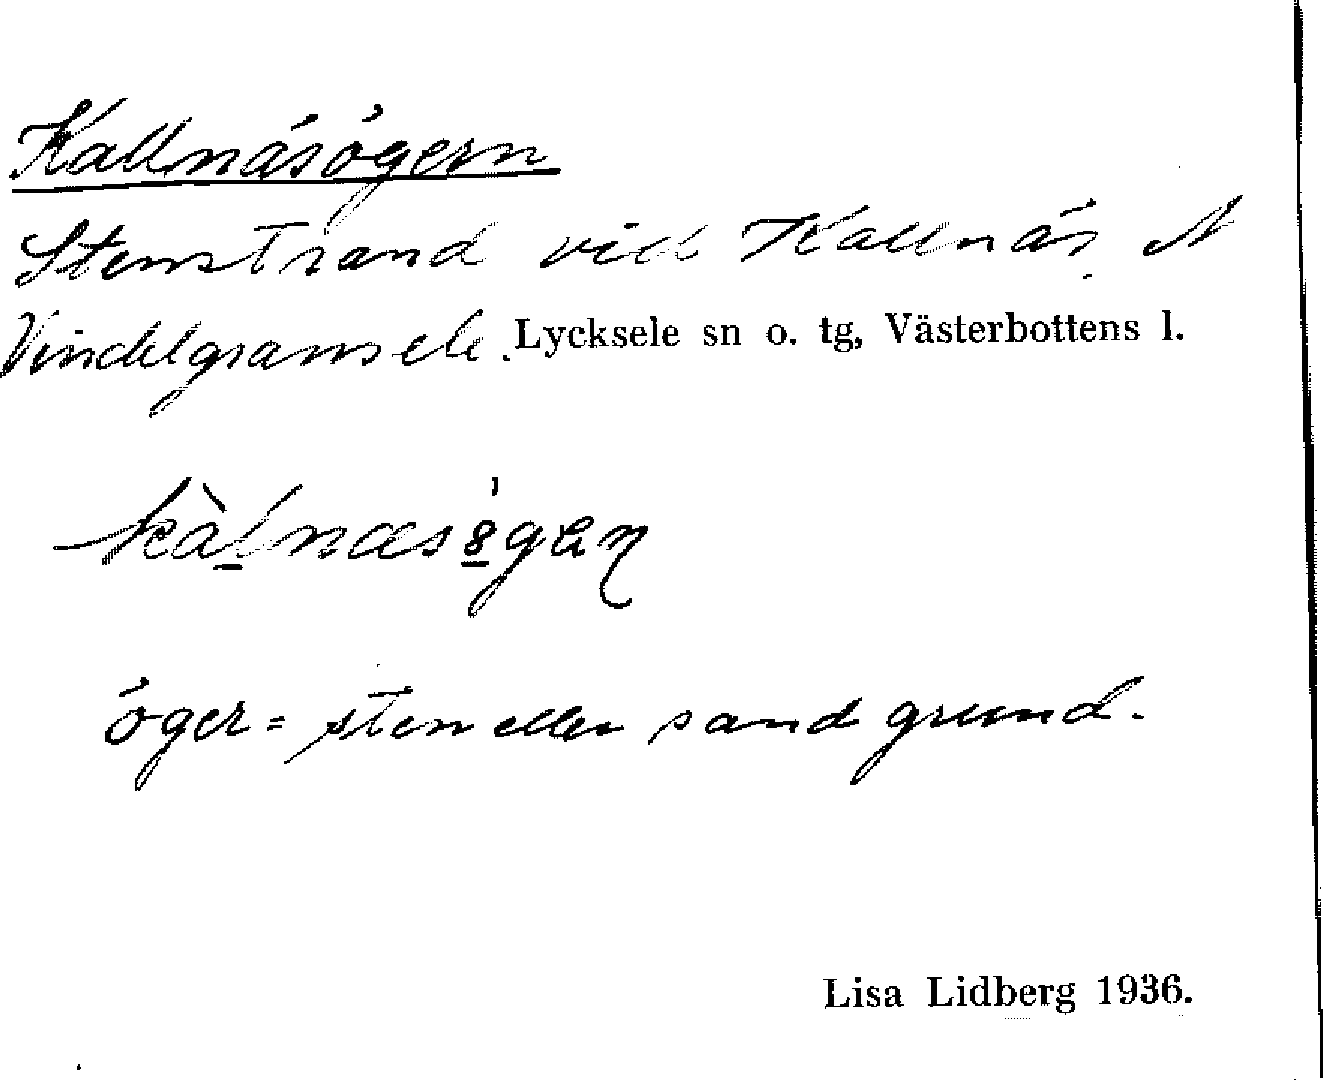 Kallnäsögern
Stenstrand vid Kallnäs N
Vindelgransele. Lycksele sn o. tg, Västerbottens l.
kàlnæsögaɳ
öger = sten eller sand grund.
Lisa Lidberg 1936.